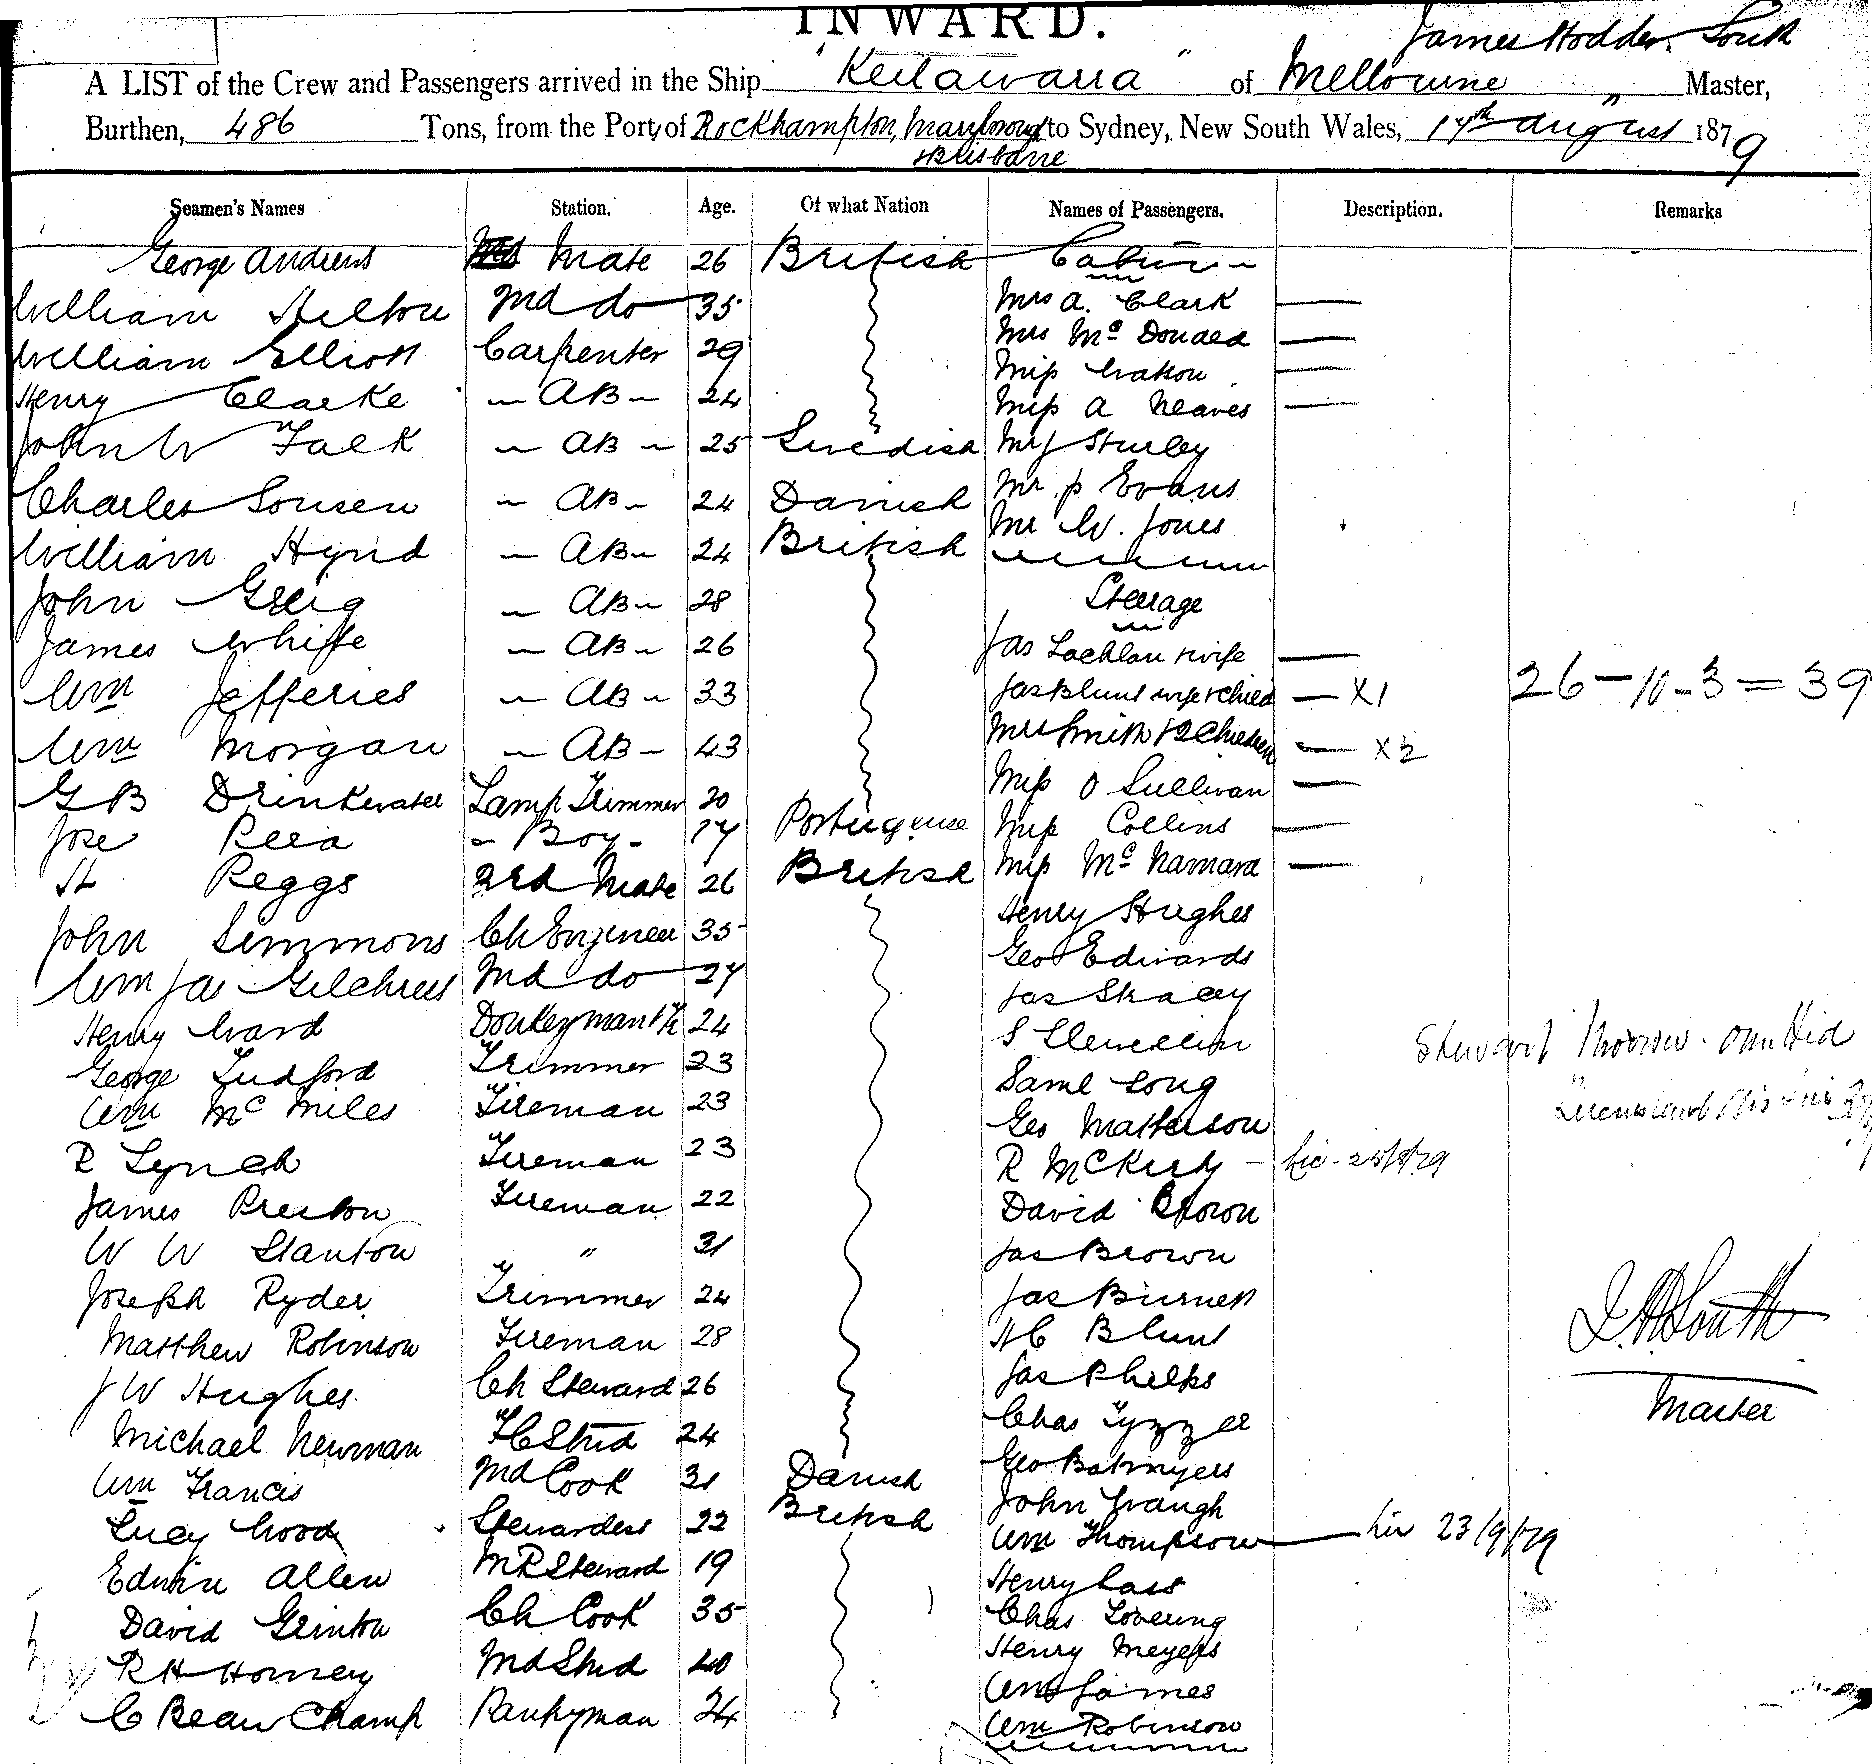 INWARD.
James Hodder South
A LIST of the Crew and Passengers arrived in the Ship "Keilawarra" of Melbourne " Master,
Burthen, 486 Tons, from the Port of Rockhampton, Maryboro' to Sydney, New South Wales, 17th August 1879
Brisbane
Seamen's Names Station. Age. Of what Nation Names of Passengers. Description. Remarks
George Andrews Mate 26 British Cabin
William Hilton 2nd do 35 Mrs A. Clark —
William Elliott Carpenter 29 Mrs McDonald —
Henry Clarke AB 24 Miss Watson —
Miss A Neaves —
John W Falk AB 25 Swedish Mr J Sturley
Charles Sonsen AB 24 Danish Mr P Evans
William Hynd AB 24 British Mr W. Jones
John Greig AB 28 Steerage
James White AB 26 Jas Lachlan & wife —
Wm Jefferies AB 33 Jas Blunt wife & child — X1 26-10-3=39
Wm Morgan AB 43 Mrs Smith & 2 Children — X2
G B Drinkwater Lamp Trimmer 20 Miss O Sullivan —
Jose Pera Boy 17 Portuguese Miss Collins —
H Peggs 3rd Mate 26 British Miss McNamara —
Henry Hughes
John Simmons Ch Engineer 35 Geo Edwards
Wm Jas Gilchrist 2nd do 27 Jas Stacey
Henry Ward Donkeyman 24 S Llewellin Stewart Morrow
George Tudford Trimmer 23 Saml Long
Wm McMiles Fireman 23 Geo Matterson
R Lynch Fireman 23 R McKirdy
James Preston Fireman 22 David Brown
W W Stanton " 31 Jas Brown
Joseph Ryder Trimmer 24 Jas Burnett
Matthew Robinson Fireman 28 H C Blunt J H South
J W Hughes Ch Steward 26 Jas Phelps Master
Michael Newman FC Stwd 24 Chas Tyzzer
Wm Francis 2nd Cook 31 Danish Geo Batmyers
Lucy Wood Stewardess 22 British John Waugh
Wm Thompson — 23/9/79
Edwin Allen MR Steward 19 Henry Cass
David Grinton Ch Cook 35 Chas Lovering
R H Horney 2nd Stwd 40 Henry Meyers
Wm James
C BeauChamp Pantryman 24 Wm Robinson